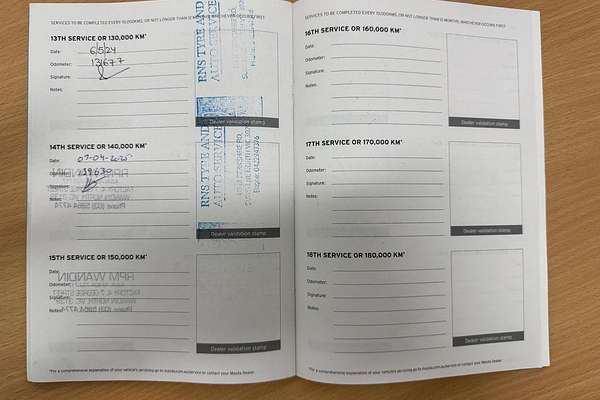 SERVICES TO BE COMPLETED EVERY 10,000KMS, OR NOT LONGER THAN 12 MONTHS, WHICHEVER OCCURS FIRST
13TH SERVICE OR 130,000 KM*
Date: 6/5/24
Odometer:
Signature:
Notes:
RNS TYRE AND
AUTO SERVICE
Dealer validation stamp
14TH SERVICE OR 140,000 KM*
Date:
Odometer:
Signature:
Notes:
RNS TYRE AND
AUTO SERVICE
Dealer validation stamp
15TH SERVICE OR 150,000 KM*
Date:
Odometer:
Signature:
Notes:
RPM WANDIN
WANDIN NORTH, VIC. 3139
Phone: (03) 5964 4774
Dealer validation stamp
*For a comprehensive explanation of your vehicle's servicing go to mazda.com.au/service or contact your Mazda Dealer.
SERVICES TO BE COMPLETED EVERY 10,000KMS, OR NOT LONGER THAN 12 MONTHS, WHICHEVER OCCURS FIRST
16TH SERVICE OR 160,000 KM*
Date:
Odometer:
Signature:
Notes:
Dealer validation stamp
17TH SERVICE OR 170,000 KM*
Date:
Odometer:
Signature:
Notes:
Dealer validation stamp
18TH SERVICE OR 180,000 KM*
Date:
Odometer:
Signature:
Notes:
Dealer validation stamp
*For a comprehensive explanation of your vehicle's servicing go to mazda.com.au/service or contact your Mazda Dealer.